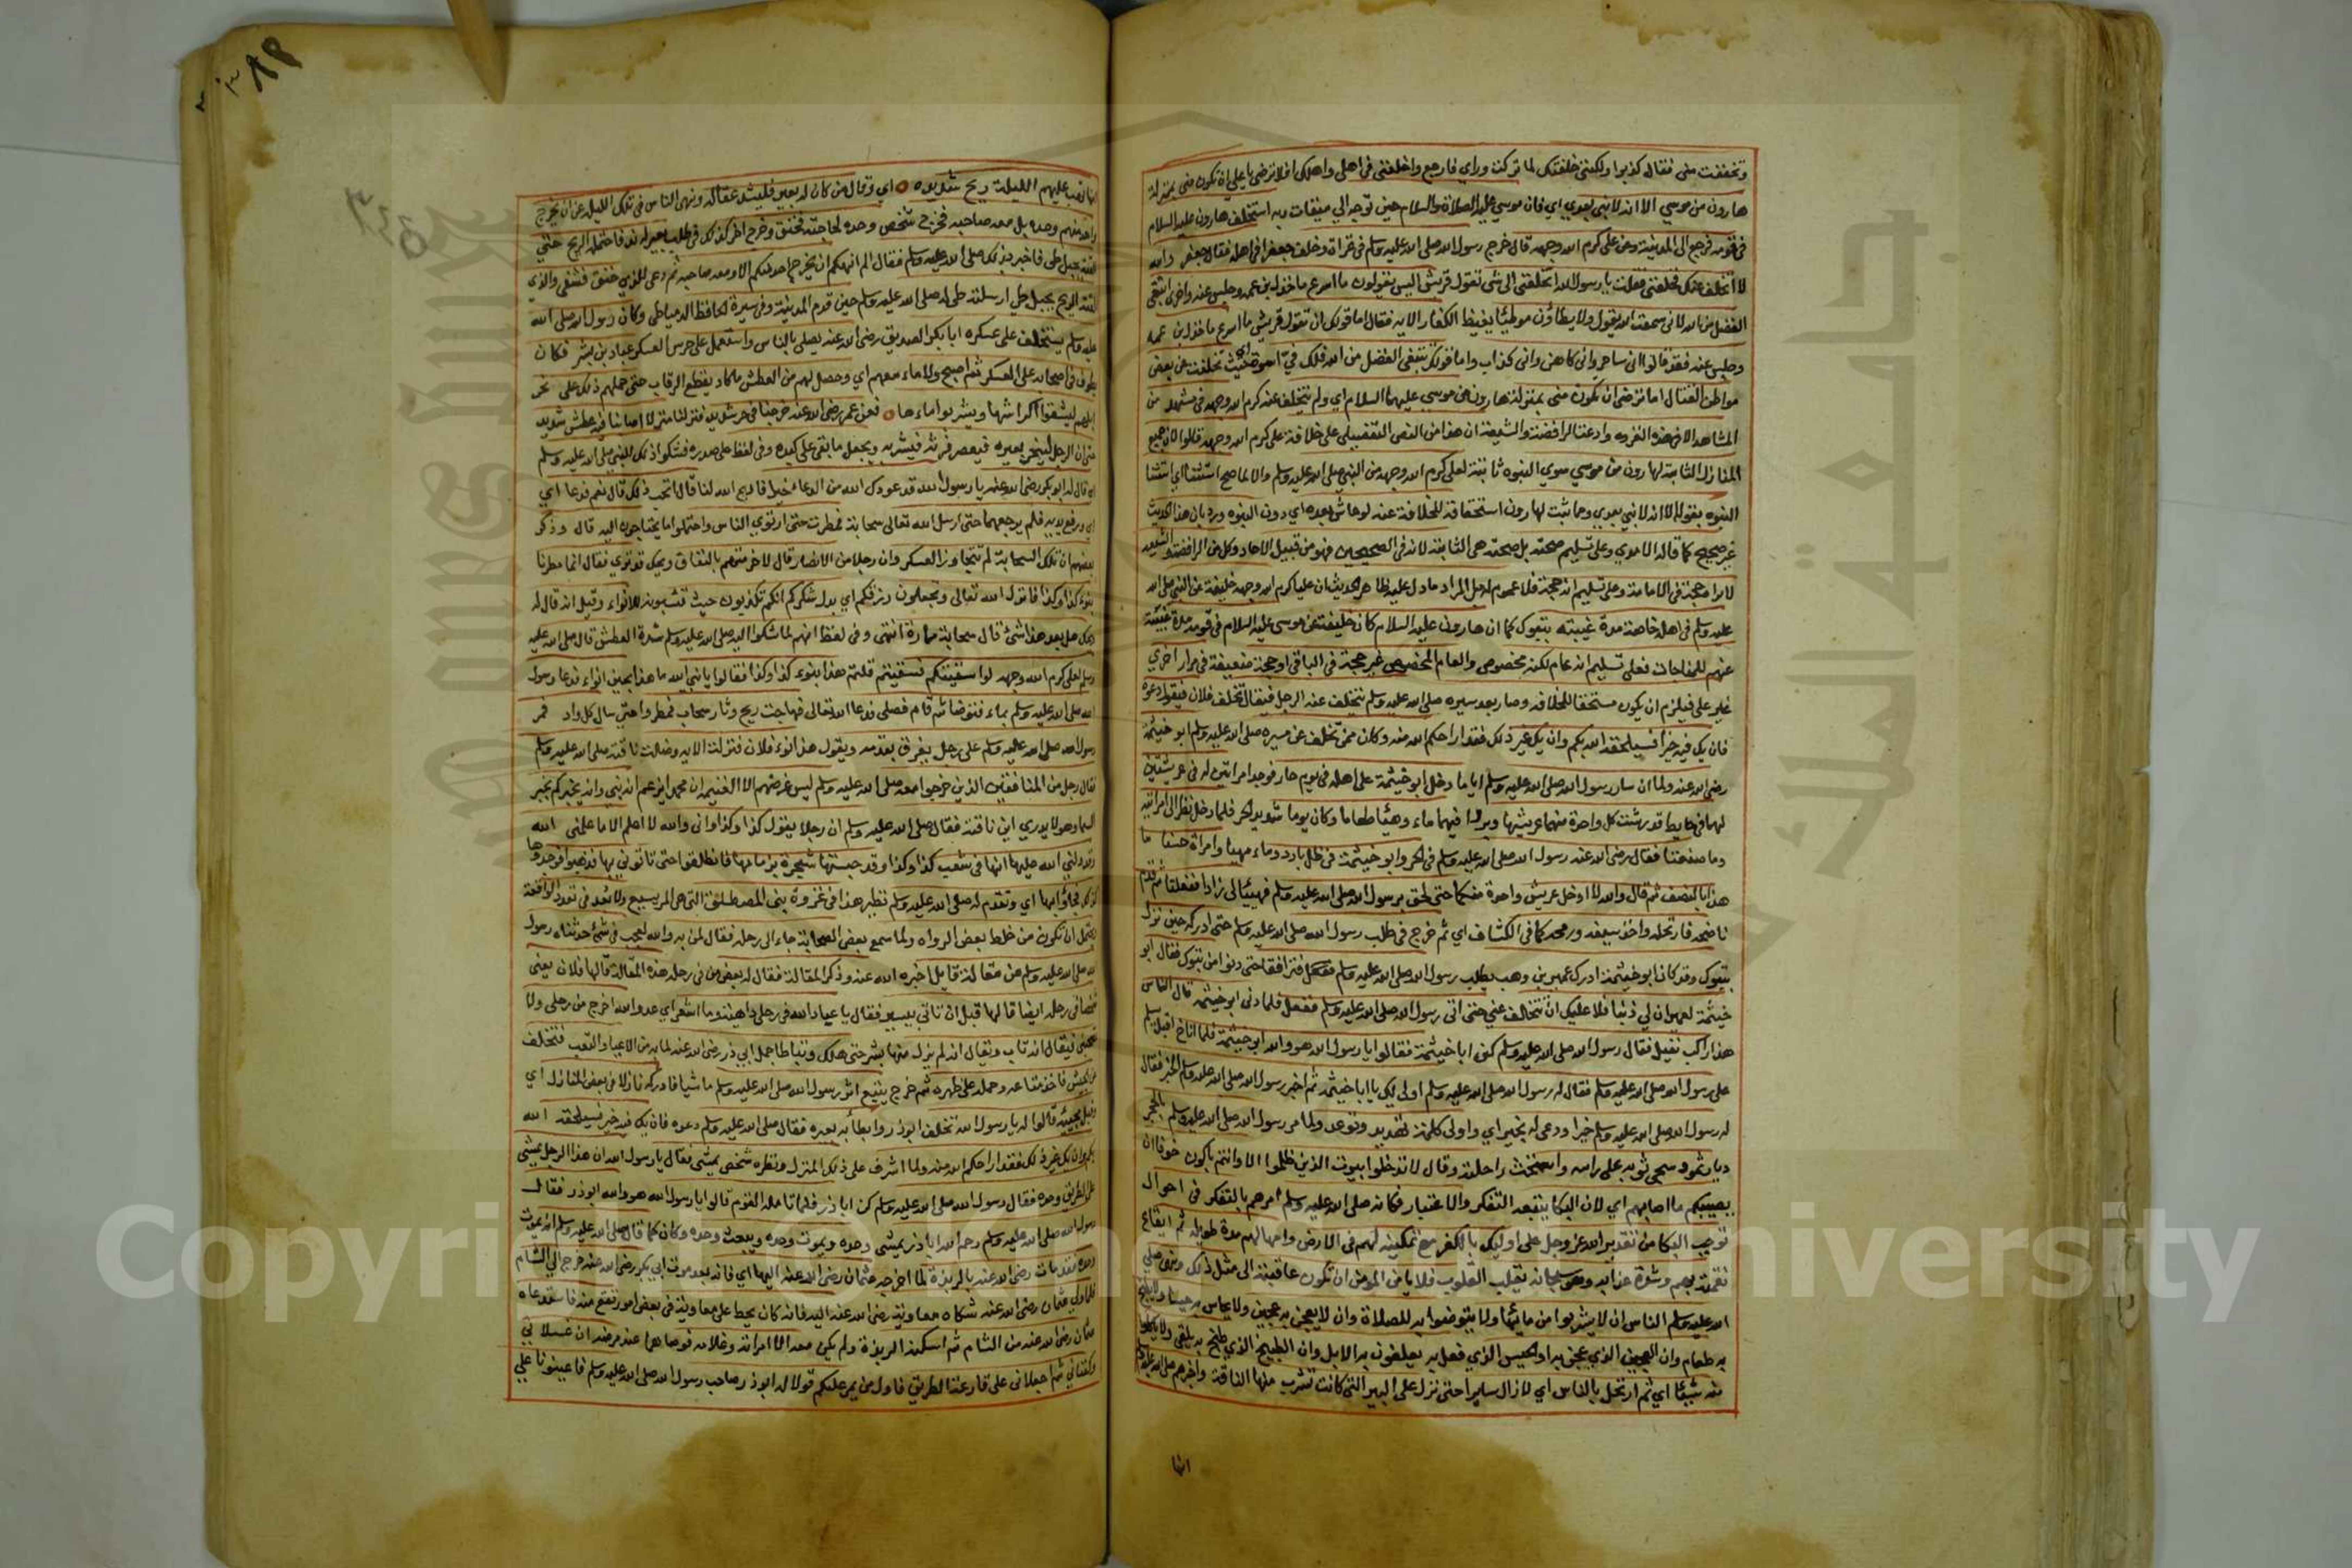 وتخففت مني فقال كذبوا ولكنني خلفتك لما تركت وراي فارجع واخلفني في اهلي واهلك افلا ترضى يا علي ان تكون مني بمنزلة
هارون من موسي الا انه لا نبي بعدي اي فان موسي عليه الصلاة والسلام حين توجه الي ميقات ربه استخلف هارون عليه السلام
في قومه فرجع الى المدينة وعن علي كرم الله وجهه قال خرج رسول الله صلى الله عليه وسلم في غزاة وخلف جعفرا في اهله فقال جعفر والله
لا اتخلف عنك فخلفني فقلت يا رسول الله اتخلفني الى شي تقول قريش اليس يقولون ما اسرع ما خذل ابن عمه وجلس عنه واخرى ابتغي
الفضل من الله لاني سمعت الله يقول ولا يطاؤن موطئا يغيظ الكفار الايه فقال اما قولك ان تقول قريش ما اسرع ما خذل ابن عمه
وجلس عنه فقد قالوا اني ساحر واني كاهن واني كذاب واما قولك تبتغي الفضل من الله فلك في اسوة اي حيث تخلفت عن بعض
مواطن القتال اما ترضى ان تكون مني بمنزلة هارون من موسي عليهما السلام اي ولم يتخلف عنه كرم الله وجهه في مشهد من
المشاهد الا في هذه الغزوه وادعت الرافضة والشيعة ان هذا من النص التفصيلي على خلافة علي كرم الله وجهه قالوا لان جميع
المنازل الثابتة لهارون من موسي سوي النبوه ثابتة لعلي كرم الله وجهه من النبي صلى الله عليه وسلم والا لما صح استثنا اي استثنا
النبوه بقوله الا انه لا نبي بعدي ومما ثبت لهارون استحقاقه للخلافة عنه لو عاش بعده اي دون النبوه ورد بان هذا الحديث
غير صحيح كما قاله الامدي وعلى تسليم صحته بل صحته هي الثابتة لانه في الصحيحين فهو من قبيل الاحاد وكل من الرافضة والشيعه
لا يراه حجة في الامامة وعلى تسليم انه حجة فلا عموم له بل المراد ما دل عليه ظاهر الحديث ان عليا كرم الله وجهه خليفة عن النبي صلى الله
عليه وسلم في اهله خاصة مدة غيبته بتبوك كما ان هارون عليه السلام كان خليفة عن موسى عليه السلام في قومه مدة غيبته
عنهم للمناجات فعلى تسليم انه عام لكنه مخصوص والعام المخصوص غير حجة في الباقي او حجة ضعيفة في مرار اخري
غير علي فيلزم ان يكون مستحقا للخلافه وصار بعد سيره صلى الله عليه وسلم يتخلف عنه الرجل فيقال تخلف فلان فيقول دعوه
فان يك فيه خير فسيلحقه الله بكم وان يك غير ذلك فقد اراحكم الله منه وكان ممن تخلف عن مسيره صلى الله عليه وسلم ابو خيثمة
رضي الله عنه ولما ان سار رسول الله صلى الله عليه وسلم اياما دخل ابو خيثمة على اهله في يوم حار فوجد امراتين له في عريشتين
لهما في حايط قد رشت كل واحدة منهما عريشها وبردا فيهما ماء وهيئا طعاما وكان يوما شديد الحر فلما دخل نظر الى امراتيه
وما صنعتا فقال رضي الله عنه رسول الله صلى الله عليه وسلم في الحر وابو خيثمة في ظل بارد وماء مهيا وامراة حسنا ما
هذا بالنصف ثم قال والله لا ادخل عريش واحدة منكما حتى الحق برسول الله صلى الله عليه وسلم فهيئا لي زادا ففعلتا ثم قدم
ناضحه فارتحله واخذ سيفه ورمحه كما في الكشاف اي ثم خرج في طلب رسول الله صلى الله عليه وسلم حتى ادركه حين نزل
بتبوك وقد كان ابو خيثمة ادرك عمير بن وهب يطلب رسول الله صلى الله عليه وسلم فترافقا حتى دنوا من تبوك فقال ابو
خيثمة لعمير ان لي ذنبا فلا عليك ان تتخلف عني حتى اتى رسول الله صلى الله عليه وسلم ففعل فلما دنى ابو خيثمة قال الناس
هذا راكب مقبل فقال رسول الله صلى الله عليه وسلم كن ابا خيثمة فقالوا يا رسول الله هو والله ابو خيثمة فلما اناخ اقبل يسلم
على رسول الله صلى الله عليه وسلم فقال له رسول الله صلى الله عليه وسلم اولى لك يا ابا خيثمة ثم اخبر رسول الله صلى الله عليه وسلم الخبر فقال
له رسول الله صلى الله عليه وسلم خيرا ودعى له بخير اي واولى كلمة تهديد وتوعد ولما مر رسول الله صلى الله عليه وسلم بالحجر
ديار ثمود سجى ثوبه على راسه واستحث راحلته وقال لا تدخلوا بيوت الذين ظلموا الا وانتم باكون خوفا ان
يصيبكم ما اصابهم اي لان البكا يتبعه التفكر والاعتبار فكانه صلى الله عليه وسلم امرهم بالتفكر في احوال
توجب البكا من تقدير الله عز وجل على اوليك بالكفر مع تمكينه لهم في الارض وامهالهم مدة طويلة ثم ايقاع
نقمته بهم وشدة عذابه وهو سبحانه يقلب القلوب فلا يامن المومن ان تكون عاقبته الى مثل ذلك ونهى صلى
الله عليه وسلم الناس ان لا يشربوا من مايها ولا يتوضوا به للصلاة وان لا يعجن به عجين ولا يحاس به حيس ولا يطبخ
به طعام وان العجين الذي عجن به او الحيس الذي فعل به يعلفون به الابل وان الطبيخ الذي طبخ به يلقى ولا ياكلوا
منه شيئا اي ثم ارتحل بالناس اي لا زال سايرا حتى نزل على البير التي كانت تشرب منها الناقة واخبرهم صلى الله عليه وسلم
انها
انها تهب عليهم الليلة ريح شديده اي وقال من كان له بعير فليشد عقاله ونهى الناس في تلك الليلة عن ان يخرج
واحد منهم وحده بل معه صاحبه فخرج شخص وحده لحاجته فخنق وخرج اخر كذلك في طلب بعير له ند فاحتمله الريح حتى
القته بجبل طي فاخبر بذلك صلى الله عليه وسلم فقال الم انهكم ان يخرج احد منكم الا ومعه صاحبه ثم دعى للذي خنق فشفي والذي
القته الريح بجبل طي ارسلته طي له صلى الله عليه وسلم حين قدم المدينة وفي سيرة الحافظ الدمياطي وكان رسول الله صلى الله
عليه وسلم يستخلف على عسكره ابا بكر الصديق رضي الله عنه يصلي بالناس واستعمل على حرس العسكر عباد بن بشر فكان
يطوف في اصحابه على العسكر ثم اصبح ولا ماء معهم اي وحصل لهم من العطش ما كاد يقطع الرقاب حتى حملهم ذلك على نحر
ابلهم ليشقوا اكراشها ويشربوا ماءها فعن عمر رضي الله عنه خرجنا في حر شديد فنزلنا منزلا اصابنا فيه عطش شديد
حتى ان الرجل لينحر بعيره فيعصر فرثه فيشربه ويجعل ما بقي على كبده وفي لفظ على صدره فشكوا ذلك للنبي صلى الله عليه وسلم
اي قال له ابو بكر رضي الله عنه يا رسول الله قد عودك الله من الدعاء خيرا فادع الله لنا قال اتحب ذلك قال نعم فدعا اي
اي ورفع يديه فلم يرجعهما حتى ارسل الله تعالى سحابة فمطرت حتى ارتوي الناس واحتملوا ما يحتاجون اليه قال وذكر
بعضهم ان تلك السحابة لم تتجاوز العسكر وان رجلا من الانصار قال لاخر متهم بالنفاق ويحك قد ترى فقال انما مطرنا
بنوء كذا وكذا فانزل الله تعالى وتجعلون رزقكم اي بدل شكركم انكم تكذبون حيث تنسبونه للانواء وقيل انه قال له
ويحك هل بعد هذا شئ قال سحابة مارة انتهى وفي لفظ انهم لما شكوا اليه صلى الله عليه وسلم شدة العطش قال صلى الله عليه
وسلم لعلي كرم الله وجهه لو استسقيت لكم فسقيتم قلتم هذا بنوء كذا وكذا فقالوا يا نبي الله ما هذا بحين انواء فدعا رسول
الله صلى الله عليه وسلم بماء فتوضا ثم قام فصلى فدعا الله تعالى فهاجت ريح وثار سحاب فمطروا حتى سال كل واد فمر
رسول الله صلى الله عليه وسلم على رجل يغرف بقدحه ويقول هذا نوء فلان فنزلت الايه وضلت ناقته صلى الله عليه وسلم
فقال رجل من المنافقين الذين خرجوا معه صلى الله عليه وسلم ليس غرضهم الا الغنيمه ان محمدا يزعم انه نبي وانه يخبركم بخبر
السما وهو لا يدري اين ناقته فقال صلى الله عليه وسلم ان رجلا يقول كذا وكذا واني والله لا اعلم الا ما علمني الله
وقد دلني الله عليها انها في شعب كذا وكذا وقد حبستها شجرة بزمامها فانطلقوا حتى تاتوني بها فذهبوا فوجدوها
كذلك فجاؤا بها اي وتقدم له صلى الله عليه وسلم نظير هذا في غزوة بني المصطلق التي هي المريسيع ولا بعد في تعدد الواقعة
ويحتمل ان تكون من خلط بعض الرواه ولما سمع بعض الصحابة جاء الى رحله فقال لمن به والله لعجب في شئ حدثناه رسول
الله صلى الله عليه وسلم عن مقالة قايل اخبره الله عنه وذكر المقالة فقال له بعض من في رحله هذه المقالة قالها فلان يعنى
شخصا في رحله ايضا قالها قبل ان تاتي بيسير فقال يا عباد الله في رحلي داهية وما اشعر اي عدو الله اخرج من رحلي ولا
تصحبني فيقال انه تاب ويقال انه لم يزل متهما بشر حتى هلك وتباطا جمل ابي ذر رضي الله عنه لما به من الاعيا والتعب فتخلف
عن الجيش فاخذ متاعه وحمله على ظهره ثم خرج يتبع اثر رسول الله صلى الله عليه وسلم ماشيا فادركه نازلا في بعض المنازل اي
وقبل مجيئه قالوا له يا رسول الله تخلف ابو ذر وابطأ به بعيره فقال صلى الله عليه وسلم دعوه فان يك فيه خير فسيلحقه الله
بكم وان يك غير ذلك فقد اراحكم الله منه ولما اشرف على ذلك المنزل ونظره شخص يمشي فقال يا رسول الله ان هذا الرجل يمشي
على الطريق وحده فقال رسول الله صلى الله عليه وسلم كن ابا ذر فلما تامله القوم قالوا يا رسول الله هو والله ابو ذر فقال
رسول الله صلى الله عليه وسلم رحم الله ابا ذر يمشي وحده ويموت وحده ويبعث وحده وكان كما قال صلى الله عليه وسلم انه يموت
وحده فقد مات رضي الله عنه بالربذة لما اخرجه عثمان رضي الله عنه اليها اي فانه بعد موت ابي بكر رضي الله عنه خرج الي الشام
فلما ولي عثمان رضي الله عنه شكاه معاوية رضي الله عنه اليه فانه كان يحط على معاوية في بعض امور تقع منه فاستدعاه
عثمان رضي الله عنه من الشام ثم اسكنه الربذة ولم يكن معه الا امراته وغلامه فوصاهما عند مرضه ان غسلاني
وكفناني ثم اجعلاني على قارعة الطريق فاول من يمر عليكم قولا له ابو ذر صاحب رسول الله صلى الله عليه وسلم فاعينونا علي
٣٤٥
Copyright © King Saud University
جامعة الملك سعود